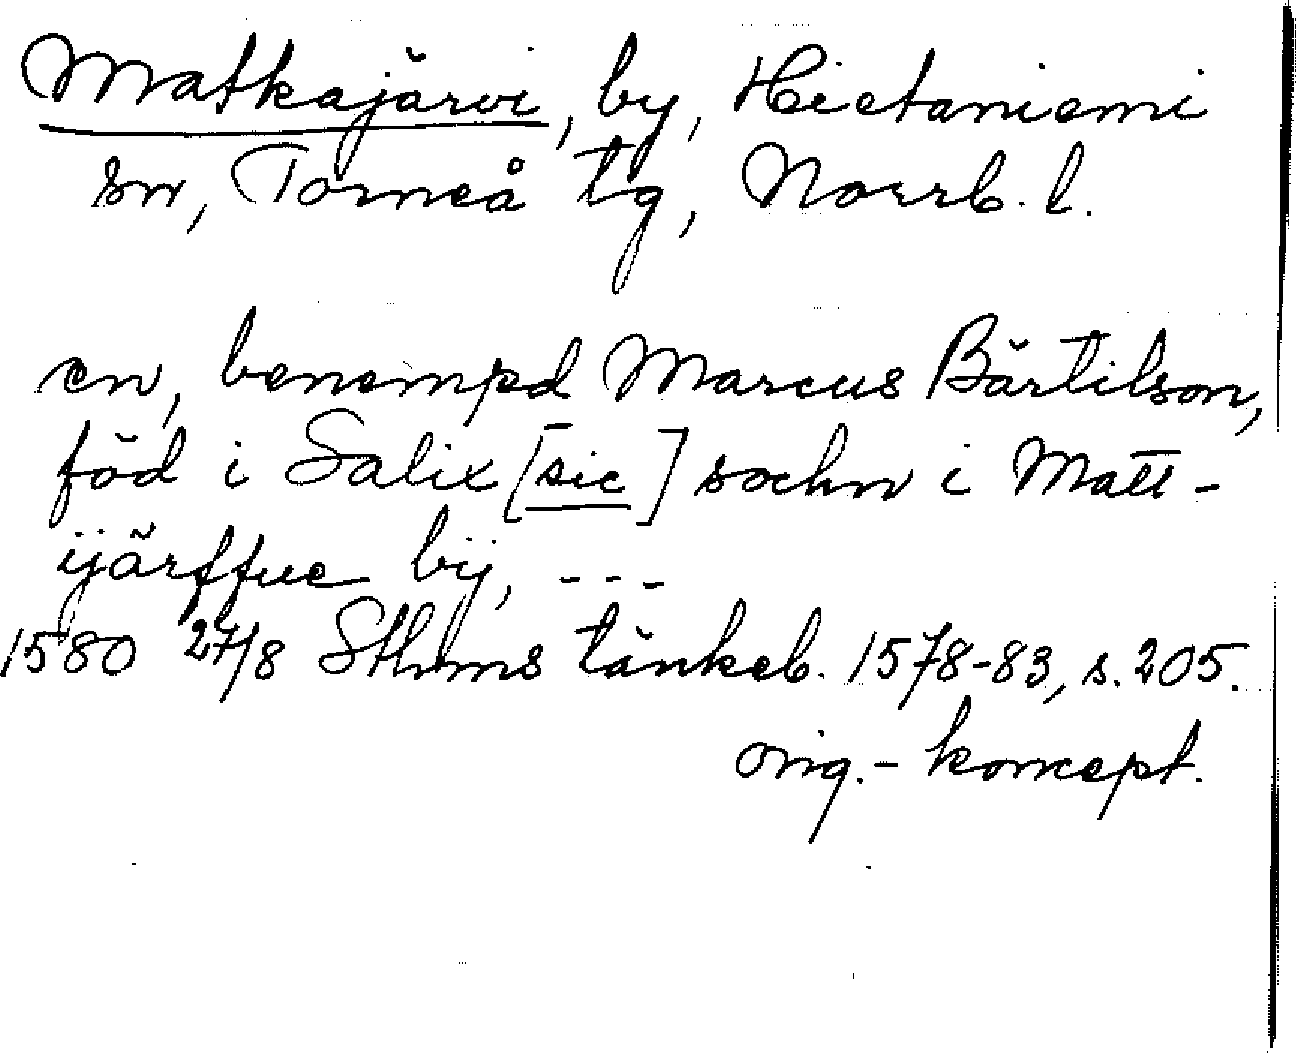 Matkajärvi, by, Hietaniemi
sn, Torneå tg, Norrb. l.
en, benempd Marcus Bärtilson,
föd i Salix [sic] sochn i Matt-
ijärffue bij, ---
1580 27/8 Sthms tänkeb. 1578-83, s. 205.
orig.- koncept.